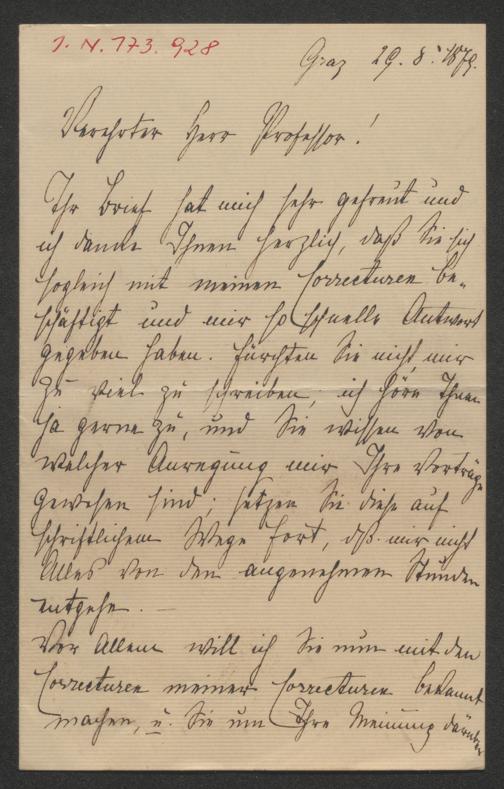 J. N. 173.928
Graz 29. 8. 1879.
Verehrter Herr Professor!
Ihr Brief hat mich sehr gefreut und
ich danke Ihnen herzlich, daß Sie sich
sogleich mit meinen Correcturen be-
schäftigt und mir so schnelle Antwort
gegeben haben. Fürchten Sie nicht, mir
zu viel zu schreiben, ich höre Ihnen
ja gerne zu, und Sie wissen von
welcher Anregung mir Ihre Vorträge
gewesen sind; setzen Sie diese auf
schriftlichem Wege fort, dß mir nicht
Alles von den angenehmen Stunden
entgehe. —
Vor Allem will ich Sie nun mit den
Correcturen meiner Correcturen bekannt
machen, u. Sie um Ihre Meinung darüber